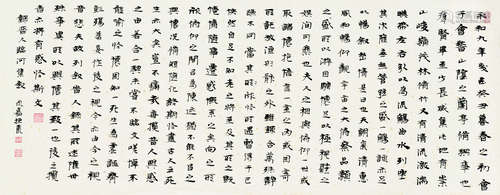 永和九年歲在癸丑暮春之初會
于會稽山陰之蘭亭脩禊事也
羣賢畢至少長咸集此地有崇
山峻領茂林脩竹又有清流激湍
映帶左右引以為流觴曲水列坐
其次雖無絲竹管弦之盛一觴一詠亦足
以暢敘幽情是日也天朗氣清惠
風和暢仰觀宇宙之大俯察品類
之盛所以遊目騁懷足以極視聽之
娛信可樂也夫人之相與俯仰一世或
取諸懷抱悟言一室之內或因寄
所託放浪形骸之外雖趣舍萬殊
靜躁不同當其欣於所遇暫得於己
快然自足不知老之將至及其所之
既惓情隨事遷感慨係之矣向之所
欣俛仰之間以為陳迹猶不能不以之
興懷況脩短隨化終期於盡古人云死
生亦大矣豈不痛哉每攬昔人興感
之由若合一契未嘗不臨文嗟悼不
能喻之於懷固知一死生為虛誕齊
彭殤為妄作後之視今亦由今之視
昔悲夫故列敘時人錄其所述雖世
殊事異所以興懷其致一也後之攬
者亦將有感於斯文
錄晉人臨河集敘